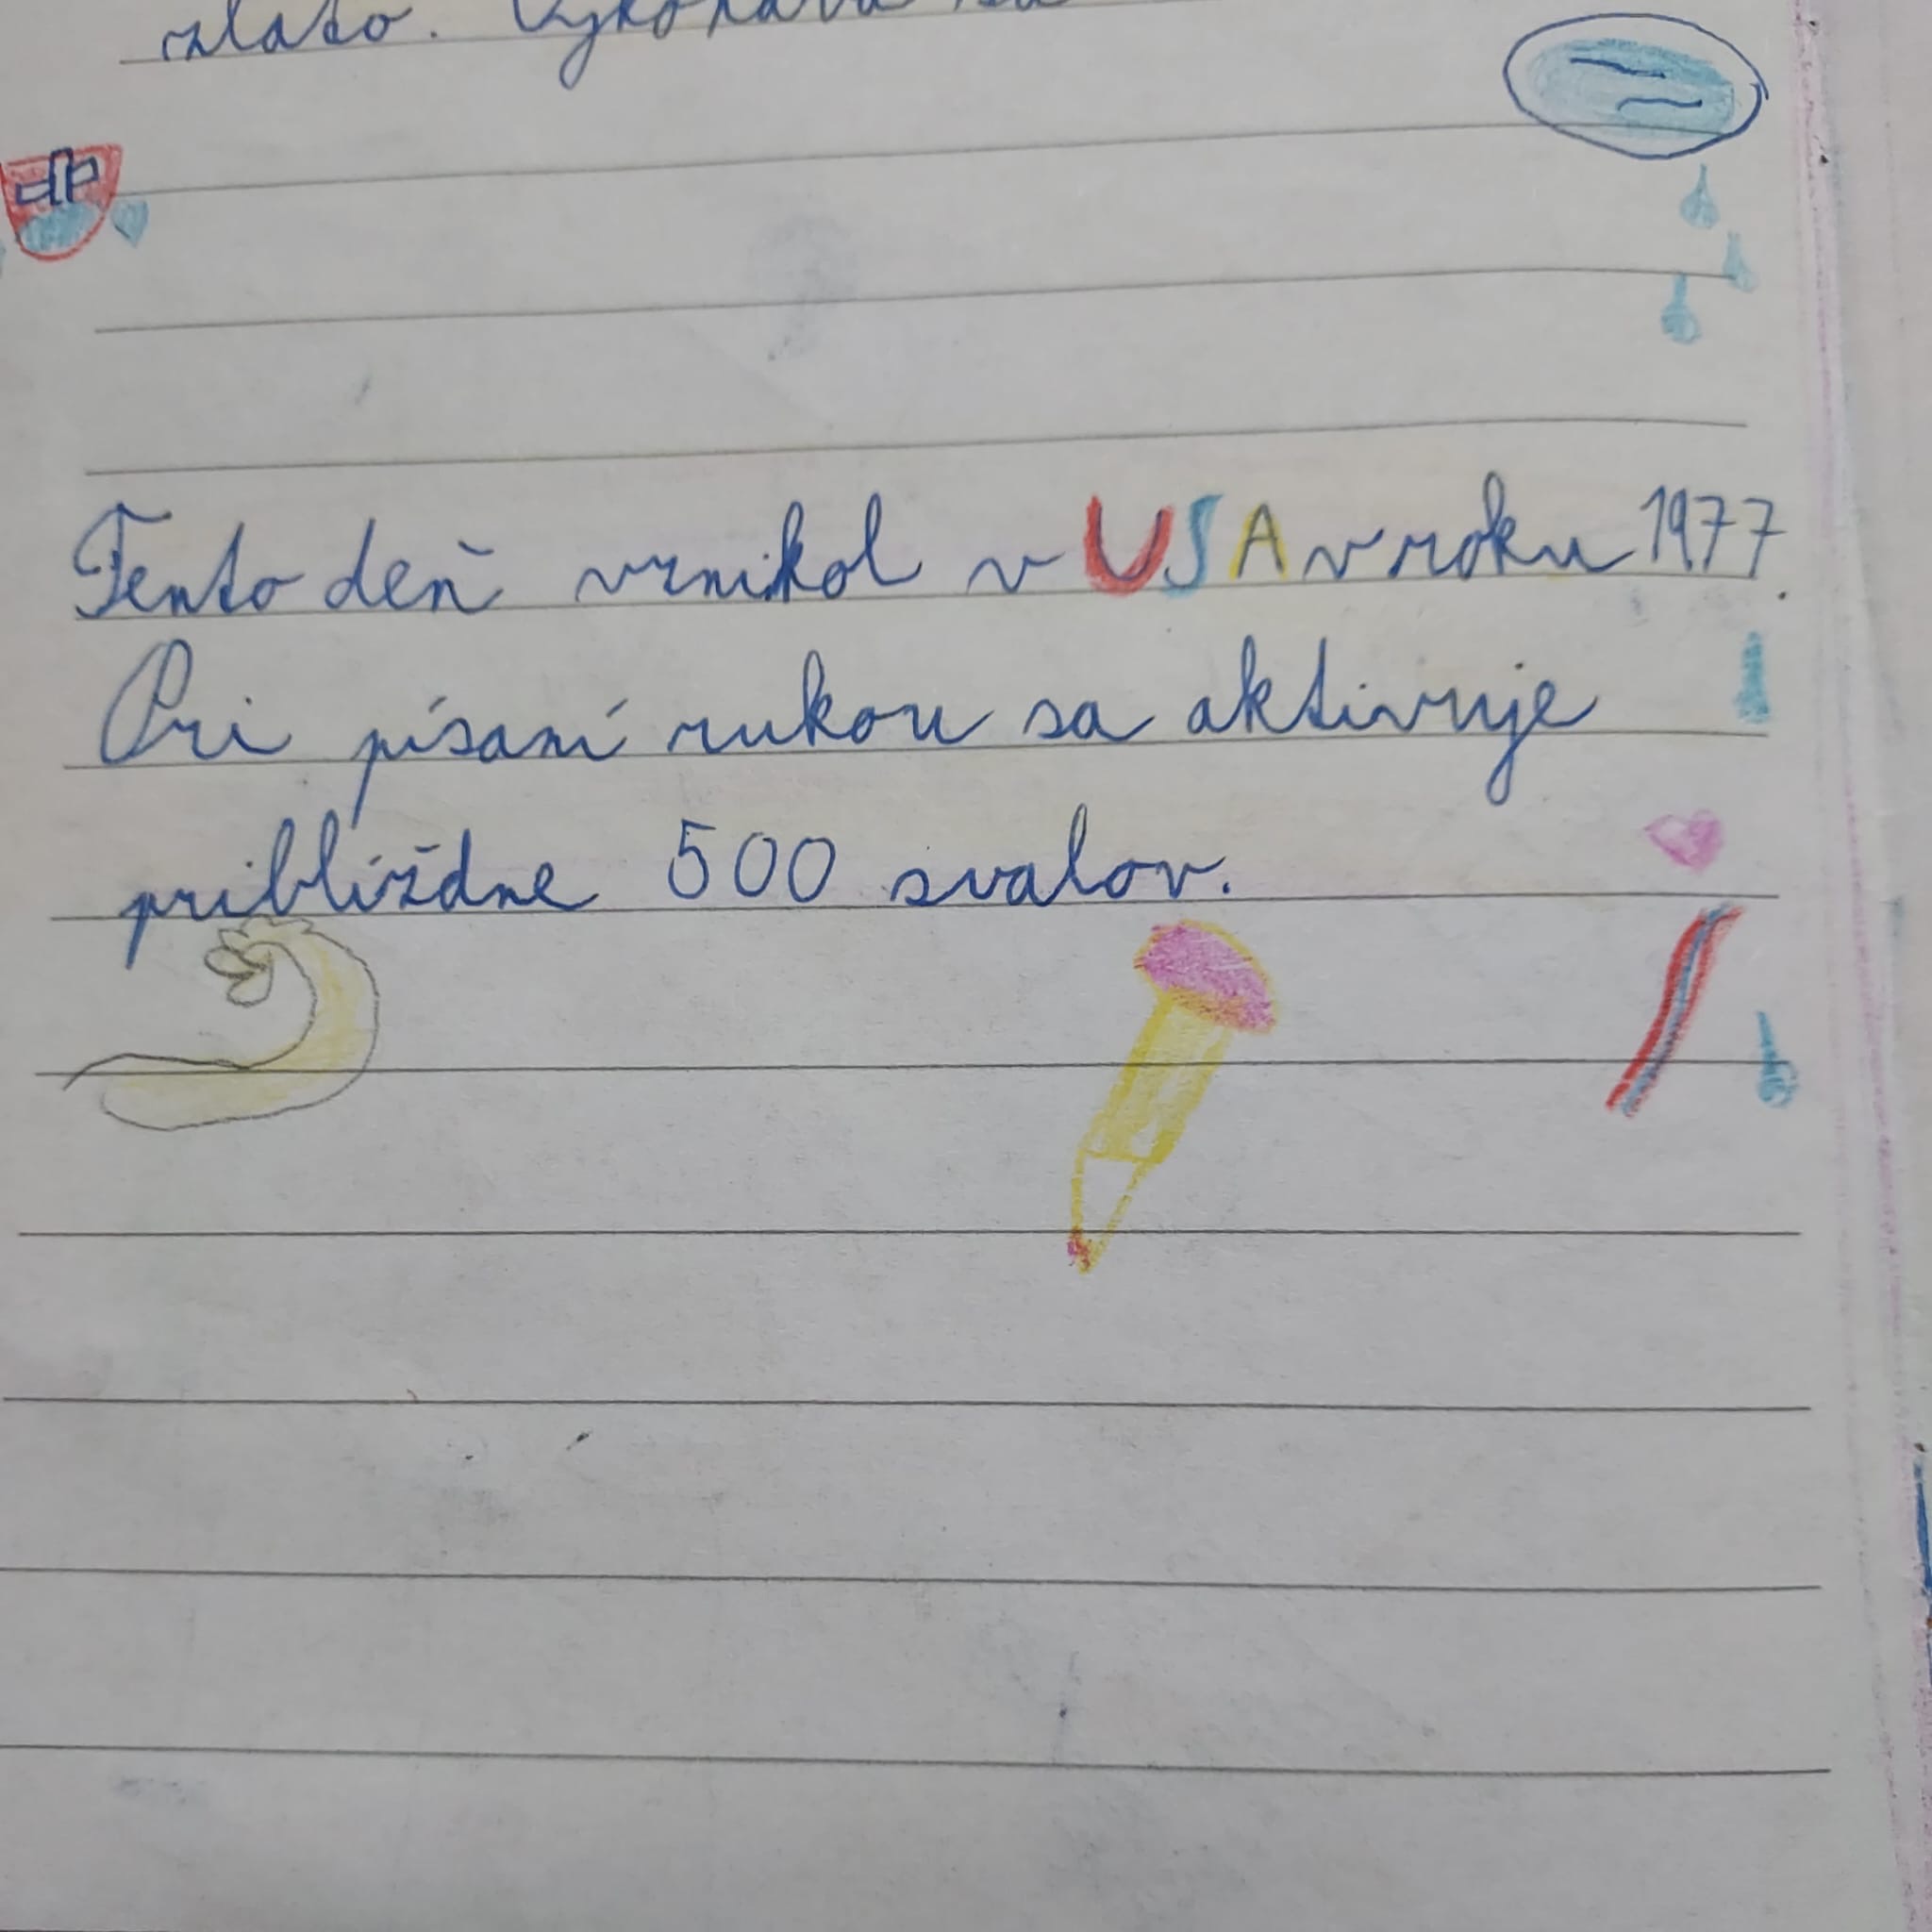 zlato. Vykonáva sa
Tento deň vznikol v USA v roku 1977.
Pri písaní rukou sa aktivuje
približdne 500 svalov.